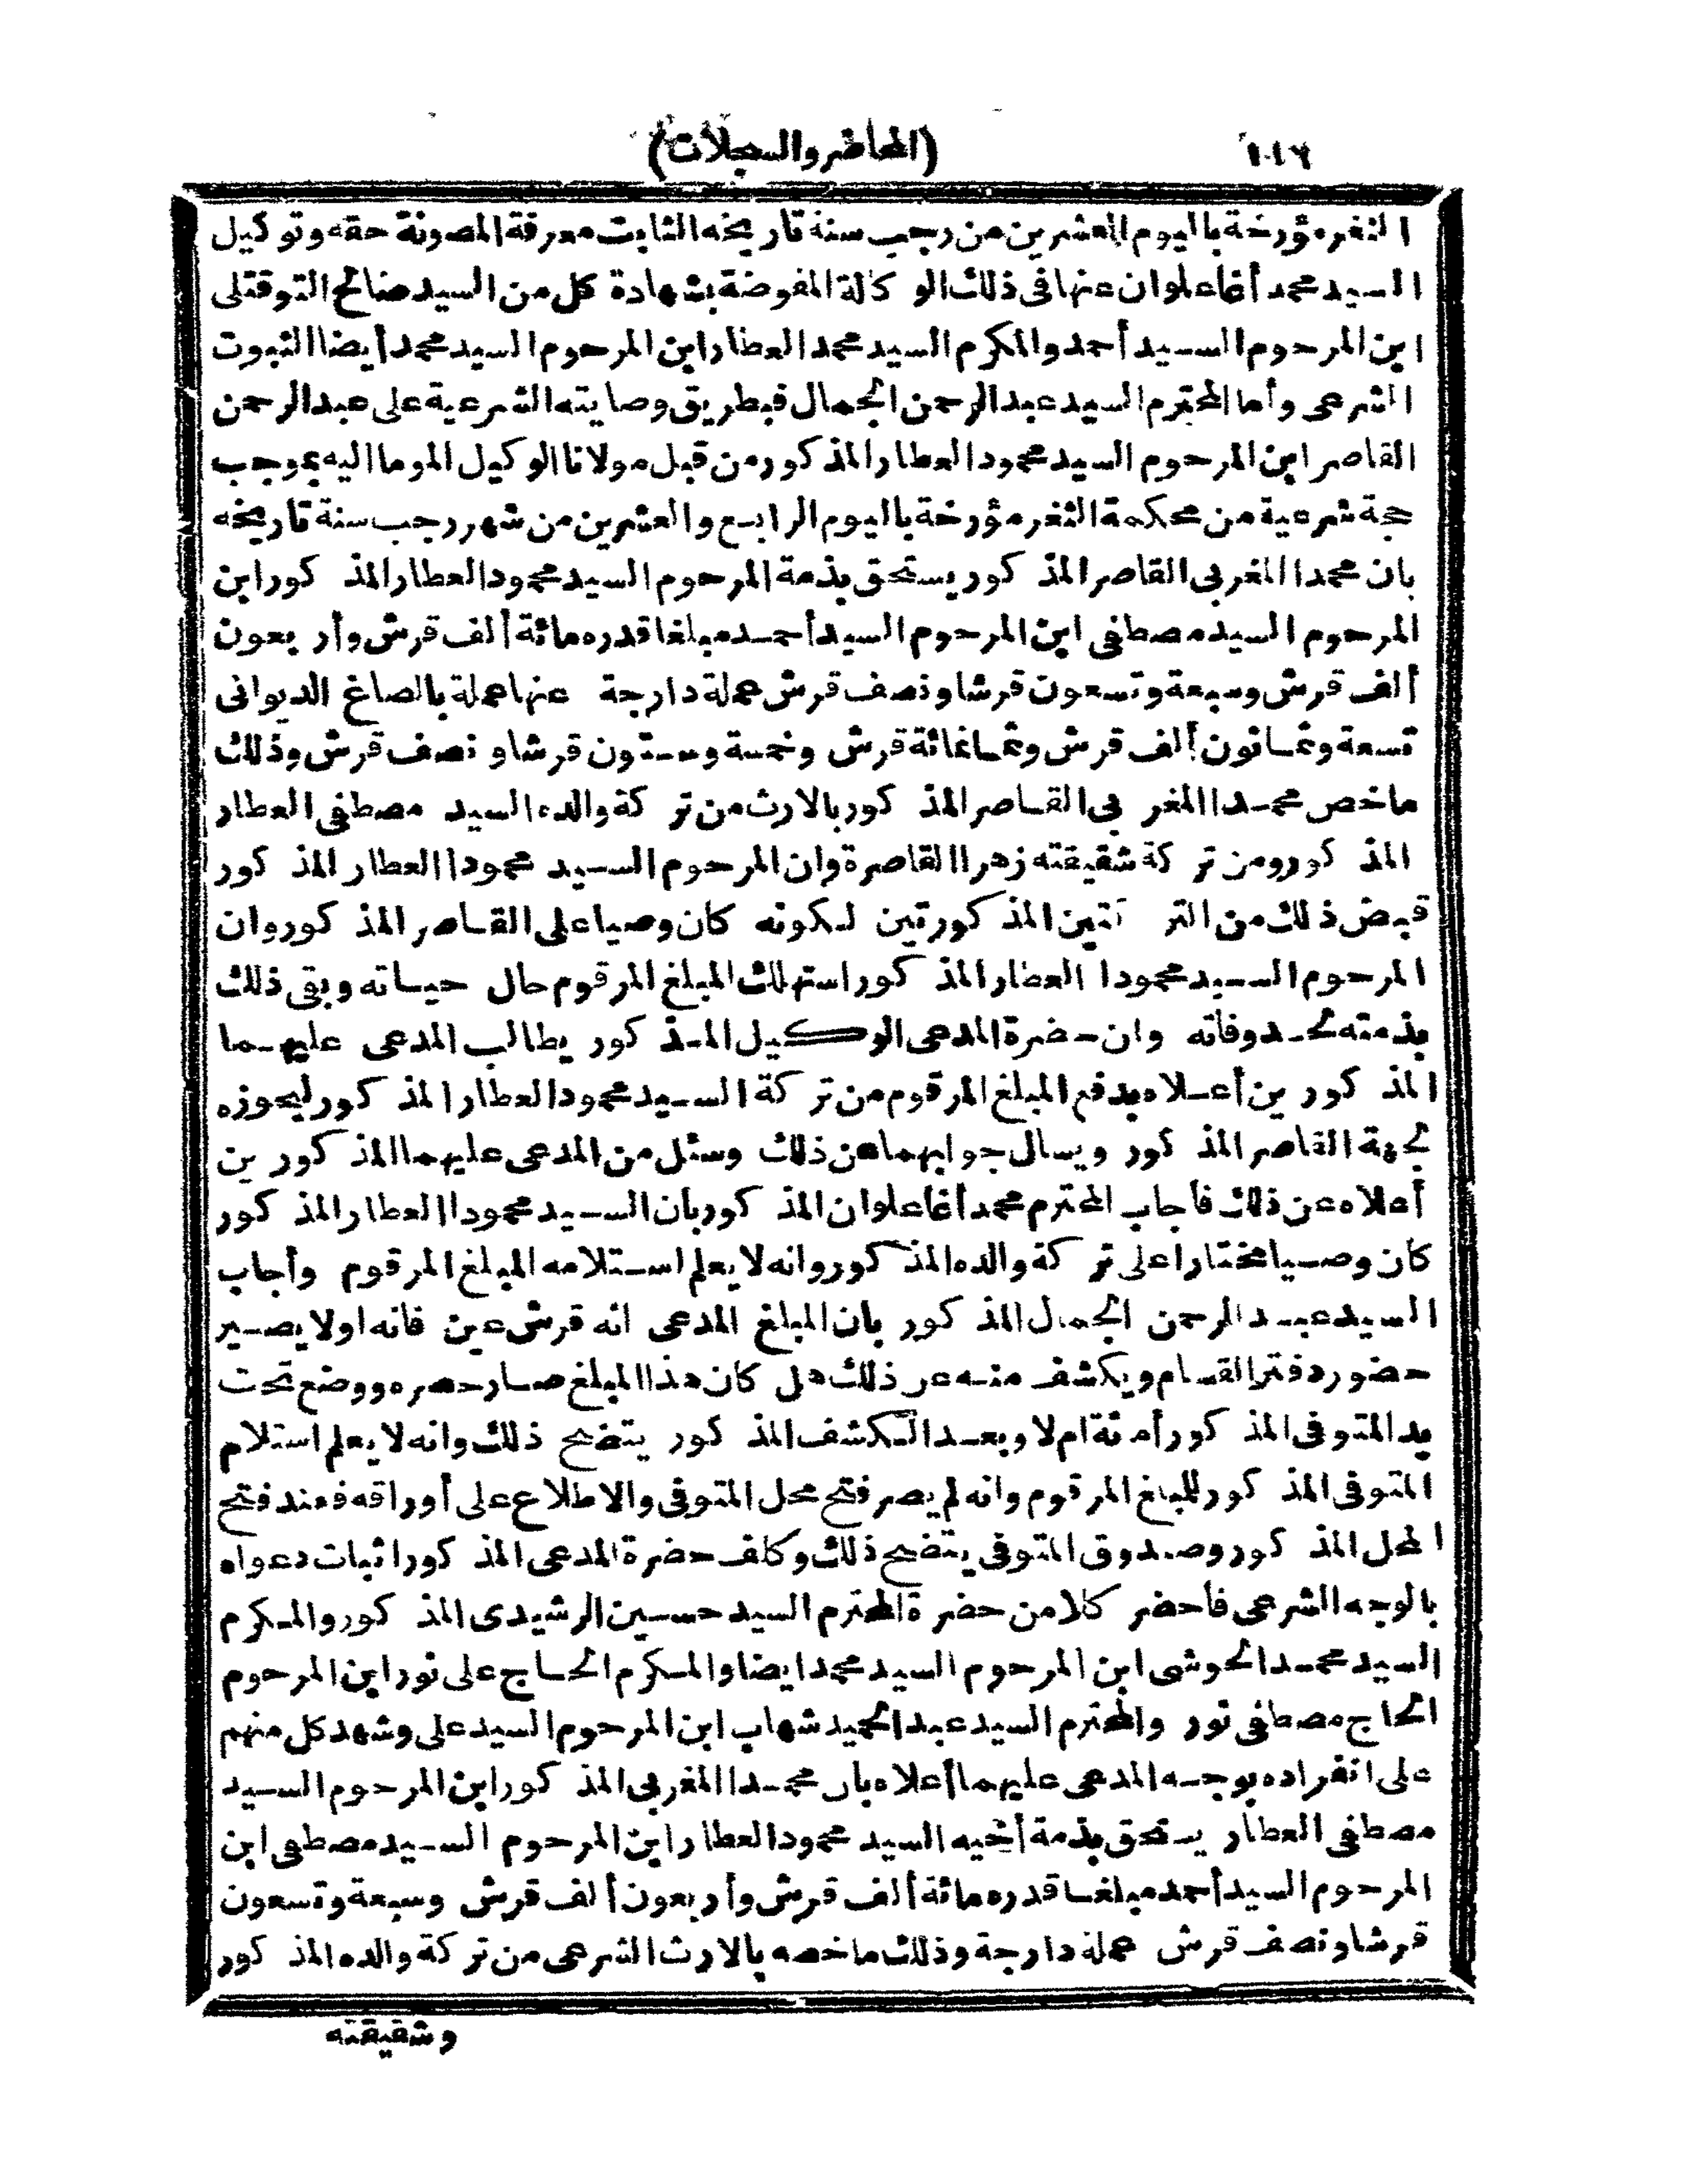 ١٠١٦ (المحاضر والسجلات)
الثغر مؤرخة باليوم العشرين من رجب سنة تاريخه الثابت معرفة المصونة حقه وتوكيل
السيد محمد أغا علوان عنها فى ذلك الوكالة المفوضة بشهادة كل من السيد صالح التوقتلى
ابن المرحوم السيد أحمد والمكرم السيد محمد العطار ابن المرحوم السيد محمد أيضا الثبوت
الشرعى وأما المحترم السيد عبد الرحمن الجمال فبطريق وصايته الشرعية على عبد الرحمن
القاصر ابن المرحوم السيد محمود العطار المذكور من قبل مولانا الوكيل الموما اليه بموجب
حجة شرعية من محكمة الثغر مؤرخة باليوم الرابع والعشرين من شهر رجب سنة تاريخه
بان محمدا المغربى القاصر المذكور يستحق بذمة المرحوم السيد محمود العطار المذكور ابن
المرحوم السيد مصطفى ابن المرحوم السيد أحمد مبلغا قدره مائة ألف قرش وأربعون
ألف قرش وسبعة وتسعون قرشا ونصف قرش عملة دارجة عنها عملة بالصاغ الديوانى
تسعة وثمانون ألف قرش وثمانمائة قرش وخمسة وستون قرشا ونصف قرش وذلك
ما خص محمدا المغربى القاصر المذكور بالارث من تركة والده السيد مصطفى العطار
المذكور ومن تركة شقيقته زهرا القاصرة وان المرحوم السيد محمودا العطار المذكور
قبض ذلك من التركتين المذكورتين لكونه كان وصيا على القاصر المذكور وان
المرحوم السيد محمودا العطار المذكور استهلك المبلغ المرقوم حال حياته وبقى ذلك
بذمته لحد وفاته وان حضرة المدعى الوكيل المذكور يطالب المدعى عليهما
المذكورين أعلاه بدفع المبلغ المرقوم من تركة السيد محمود العطار المذكور ليحوزه
لجهة القاصر المذكور ويسال جوابهما عن ذلك وسئل من المدعى عليهما المذكورين
أعلاه عن ذلك فأجاب المحترم محمد أغا علوان المذكور بان السيد محمودا العطار المذكور
كان وصيا مختارا على تركة والده المذكور وانه لا يعلم استلامه المبلغ المرقوم وأجاب
السيد عبد الرحمن الجمال المذكور بان المبلغ المدعى انه قرش عين فانه اولا يصير
حضور دفتر القسام ويكشف منه عن ذلك هل كان هذا المبلغ صار حصره ووضع تحت
يد المتوفى المذكور أمانة ام لا وبعد الكشف المذكور يتضح ذلك وانه لا يعلم استلام
المتوفى المذكور للمبلغ المرقوم وانه لم يصر فتح محل المتوفى والاطلاع على أوراقه فعند فتح
المحل المذكور وصندوق المتوفى يتضح ذلك وكلف حضرة المدعى المذكور اثبات دعواه
بالوجه الشرعى فأحضر كلا من حضرة المحترم السيد حسين الرشيدى المذكور والمكرم
السيد محمد الحوشى ابن المرحوم السيد محمد ايضا والمكرم الحاج على نور ابن المرحوم
الحاج مصطفى نور والمحترم السيد عبد الحميد شهاب ابن المرحوم السيد على وشهد كل منهم
على انفراده بوجه المدعى عليهما أعلاه بان محمدا المغربى المذكور ابن المرحوم السيد
مصطفى العطار يستحق بذمة أخيه السيد محمود العطار ابن المرحوم السيد مصطفى ابن
المرحوم السيد أحمد مبلغا قدره مائة ألف قرش وأربعون ألف قرش وسبعة وتسعون
قرشا ونصف قرش عملة دارجة وذلك ما خصه بالارث الشرعى من تركة والده المذكور
وشقيقته